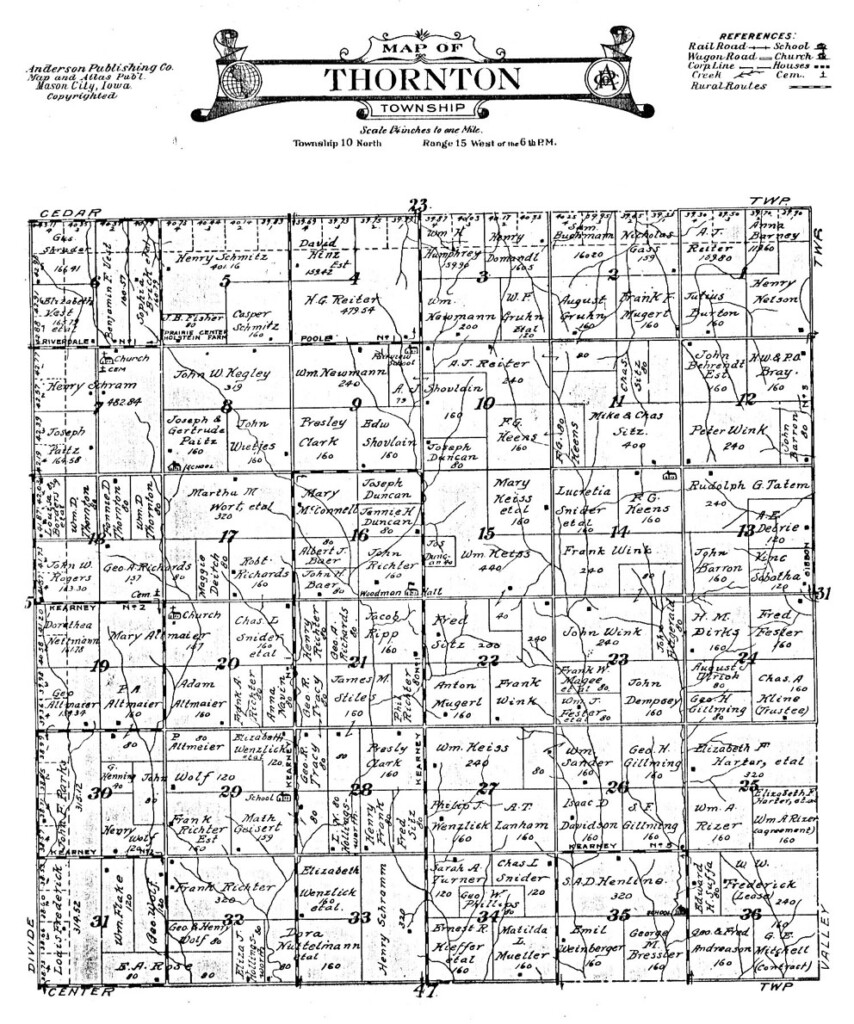 Anderson Publishing Co.
Map and Atlas Publ.
Mason City, Iowa
Copyrighted
MAP OF
THORNTON
TOWNSHIP
Scale 1¾ inches to one Mile.
Township 10 North Range 15 West of the 6th P.M.
REFERENCES:
Rail Road School
Wagon Road Church
Corp Line Houses
Creek Cem.
Rural Routes
23
CEDAR
TWP.
TWP.
Gus
Shrader
166.41
Elizabeth
Vest
etal
RIVERDALE
6
Benjamin F. Veil
Sophia
Brick etal
N° 1
Henry Schmitz
401.16
5
J.B. Fisher
80
PRAIRIE CENTER
HOLSTEIN FARM
Casper
Schmitz
160
David
Hinz
Est
159.42
4
H.G. Reiter
479.54
POOLE N° 1
Wm H.
Humphrey
159.96
Henry
Domandl
160.5
3
Wm.
Newmann
200
W.F.
Gruhn
Etal
120
Sam.
Buchmann
160.20
Nicholas
Gass
159
2
August
Gruhn
160
Frank F.
Mugerl
160
A.J.
Reiter
109.80
Anna
Barney
119.60
1
Julius
Burton
160
Henry
Nelson
Church
CEM
Henry Schram
482.84
7
Joseph
Paitz
164.58
John W Hegley
319
8
Joseph &
Gertrude
Paitz
160
John
Wietjes
160
SCHOOL
Wm. Newmann
240
School
A. J.
79
Shovlain
160
9
Presley
Clark
160
Edw
Shovlain
160
A.J. Reiter
240
10
Joseph
Duncan
80
F.G.
Keens
160
Chas.
Sitz
80
11
F.G.
Keens
80
Mike & Chas
Sitz.
400
John
Behrendt
Est
160
H.W. & P.O.
Bray.
160
12
Peter Wink
240
John
Barron
80
N° 3
Louisa
etal
Wm. D.
Thornton
Fannie D
Thornton
80
W. D.
Thornton
80
18
John W.
Rogers
163.30
Geo A Richards
157
80
Cem
Martha M
Wort, etal
320
17
Maggie
Deitch
80
Robt
Richards
160
Mary
McConnell
Joseph
Duncan
80
Fannie H
Duncan
80
16
80
Albert J.
Baer
John H.
Baer
80
John
Richler
160
Woodman Hall
Mary
Heiss
etal
160
15
Jos
Duncan
40
Wm. Heiss
440
Lucretia
Snider
etal
160
F.G.
Keens
160
14
Frank Wink
240
Rudolph G. Tatem
240
13
A.E.
Debrie
120
John
Barron
160
King
Sabatha
120
GIBBON
31
5
KEARNEY N° 2
Dorothea
Nettmann
Mary Altmaier
167
19
Geo
Altmaier
159.34
P.A.
Altmaier
160
Church
Chas. L
Snider
etal
160
20
Adam
Altmaier
160
Frank A.
Richter
80
Anna
Mavin
80
Henry
Richter
80
Geo. A.
Richards
80
Jacob
Ripp
160
21
Geo R.
Tracy
80
James M.
Stiles
160
Phil
Richter
80
Fred
Sitz 200
40
240
22
Anton
Mugerl
160
Frank
Wink
John Wink
240
John
Fitzgerald
80
23
Frank W.
Magee
etal 80
Wm. J.
Fester
etal 80
John
Dempsey
160
H. M.
Dirks
160
Fred
Fester
160
24
August
Ulrich
80
Geo H
Gillming
80
Chas. A
Kline
(Trustee)
160
John F. Parks
315.12
80
G.
Henning
40
30
Henry
Wolf
120
KEARNEY N° 2
P
80
Altmeier
Elizabeth
Wenzlick
etal
120
John Wolf 120
29
School
Frank
Richter
Est
160
Math
Geisert
159
KEARNEY
Geo. R.
Tracy
80
80
Presly
Clark
160
28
80
E. W.
Hollings-
worth
80
Henry
Frank
80
Fred
Sitz
80
KEARNEY
Wm. Heiss
240
80
27
Philip J.
Wenzlick
160
A.T.
Lanham
160
Wm.
Sander
160
Geo. H.
Gillming
160
26
Isaac D
Davidson
160
S. F.
Gillming
160
KEARNEY N° 5
Elizabeth F
Harter, etal
320
25
Wm. A.
Rizer
160
Elizabeth F
Harter, etal
160
Wm A Rizer
(agreement)
160
Louis Frederick
314.52
31
Wm. Flake
120
Geo Wolf
120
E. A. Rose
80
80
Frank Richter
320
32
Geo & Henry
Wolf 80
Eliza J.
Hollings-
worth
80
Elizabeth
Wenzlick
etal.
160
33
Dora
Nuttelmann
etal
160
Henry Schramm
320
Sarah A
Turner
120
Chas. L
Snider
120
Geo W.
Phillips
80
34
Ernest R.
Kieffer
etal
160
Matilda
L
Mueller
160
S.A.D Henline.
320
35
SCHOOL
Emil
Weinberger
160
George
M.
Bressler
160
Edward
Huffa
80
W. W.
Frederick
(Lease)
240
36
Geo & Fred
Andreason
160
160
G. E.
Mitchell
(contract)
DIVIDE
VALLEY
CENTER
47
TWP